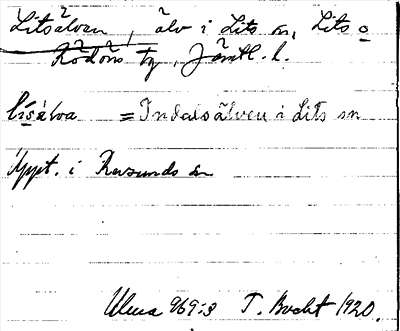 Litsälven, älv i Lits sn, Lits o
Rödöns tg, Jämtl. l.
lísálva = Indalsälven i Lits sn
Uppt. i Ragunds sn
Ulma 969:3 T. Bucht 1920.